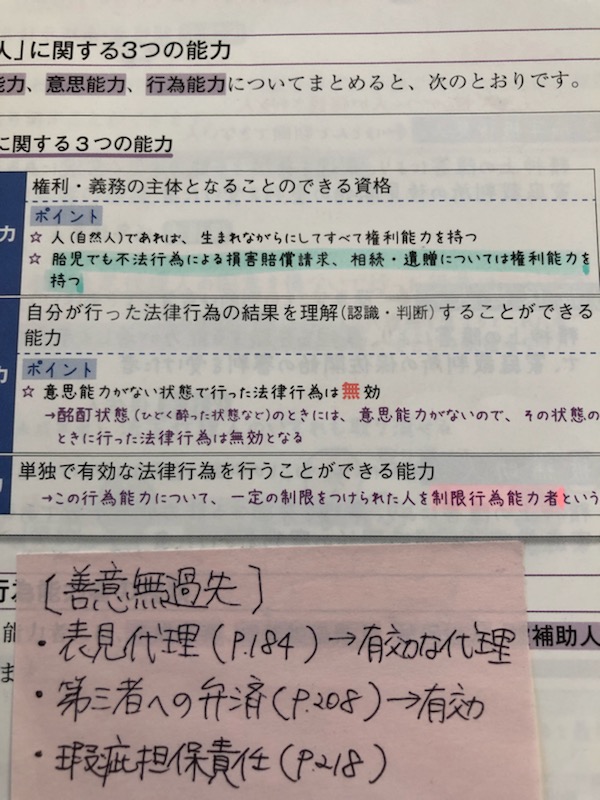 人」に関する3つの能力
能力、意思能力、行為能力についてまとめると、次のとおりです。
に関する3つの能力
権利・義務の主体となることのできる資格
力
ポイント
☆ 人(自然人)であれば、生まれながらにしてすべて権利能力を持つ
☆ 胎児でも不法行為による損害賠償請求、相続・遺贈については権利能力を
持つ
自分が行った法律行為の結果を理解(認識・判断)することができる
能力
力
ポイント
☆ 意思能力がない状態で行った法律行為は無効
→酩酊状態(ひどく酔った状態など)のときには、意思能力がないので、その状態の
ときに行った法律行為は無効となる
単独で有効な法律行為を行うことができる能力
→この行為能力について、一定の制限をつけられた人を制限行為能力者という
行
[善意無過失]
能
・表見代理(P.184)→有効な代理
補助人
ま
・第三者への弁済(P.208)→有効
・瑕疵担保責任(P.218)